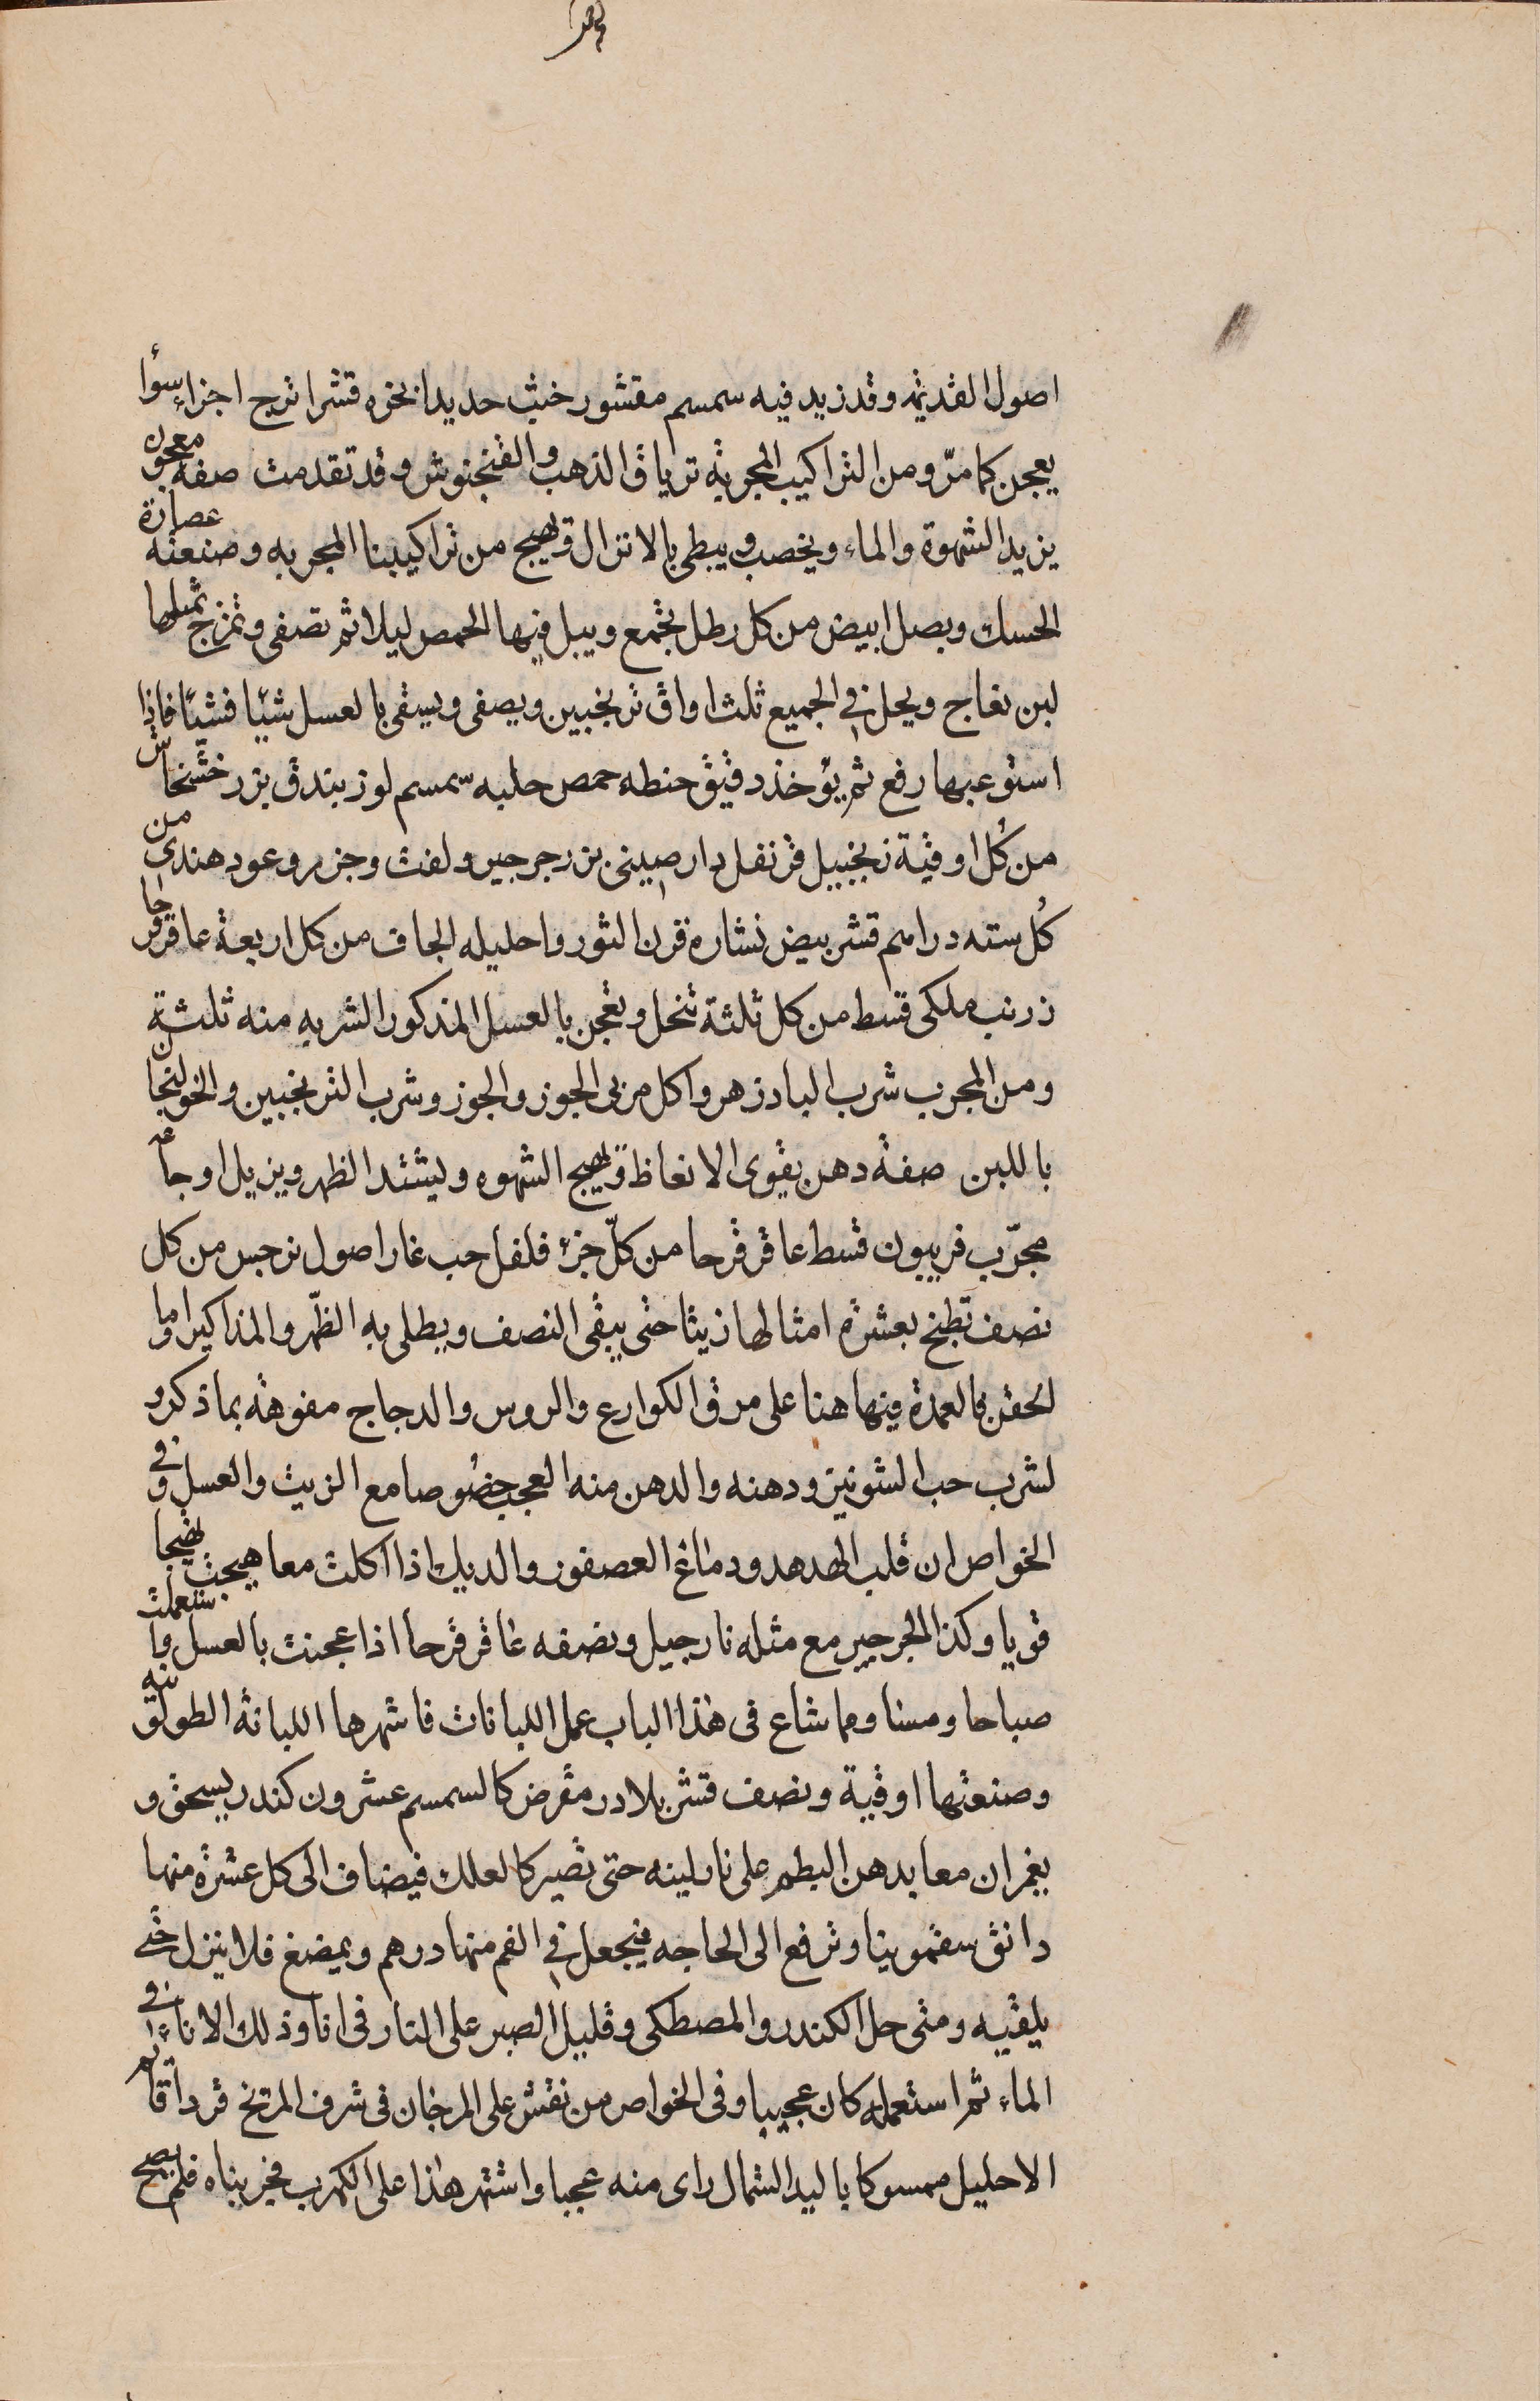 اصول القديمه وقد زيد فيه سمسم مقشور خبث حديد انجزه قشر اترج اجزاء سوأ
يعجن كما مرّ ومن التراكيب المجربة ترياق الذهب والفنجنوش وقد تقدمت صفة معجون
يزيد الشهوة والماء ويخصب ويبطى بالانزال ويهيج من تراكيبنا المجربه وصنعته عصارة
الحسك وبصل ابيض من كل رطل تجمع ويبل فيها الحمص ليلا ثم تصفى وتمزج بمثلها
لبن نعاج ويحل في الجميع ثلث اواق ترنجبين ويصفى ويسقى بالعسل شيًا فشيًا فاذا
استوعبها رفع ثم يؤخذ دقيق حنطه حمص حلبه سمسم لوز بندق بزر خشخاش
من كُل اوقية زنجبيل قرنفل دارصينى بزر جرجير ولفت وجزر وعود هندى من
كُل سته دراهم قشر بيض نشارة قرن الثور واحليله الجاف من كل اربعة عاقرقرحا
زرنب ملكى قسط من كل ثلثة تنخل وتعجن بالعسل المذكور الشربه منه ثلثة
ومن المجرب شرب البادزهر واكل مربى الجوز والجوز وشرب الترنجبين والخولنجان
باللبن صفة دهن يقوى الانعاظ ويهيج الشهوه ويشتد الظهر ويزيل اوجاعه
مجرّب فربيون قسط عاقرقرحا من كلّ جزء فلفل حب غار اصول نرجس من كل
نصف تطبخ بعشرة امثالها زيتا حتى يبقى النصف ويطلى به الظّهر والمذاكير واما
الحقن فالعمدة فيها هنا على مرق الكوارع والروس والدجاج مفوهة بما ذكر و
لشرب حب الشونيز ودهنه والدهن منه العجب خصُوصا مع الزيت والعسل وفى
الخواص ان قلب الهدهد ودماغ العصفور والديك اذا اكلت معا هيجت تهيجا
قويا وكذا الجرجير مع مثله نارجيل ونصفه عاقرقرحا اذا عجنت بالعسل واستعملت
صباحا ومسا ومما شاع فى هذا الباب عمل اللبانات فاشهرها اللبانة الطولونيه
وصنعتها اوقية ونصف قشر بلادر مقرض كالسمسم عشرون كندر يسحق و
يغمران معا بدهن البطم على نار لينه حتى تصير كالعلك فيضاف الى كل عشرة منها
دانق سقمونيا وترفع الى الحاجه فيجعل في الفم منها درهم ويمضغ فلا ينزل حتى
يلقيه ومتى حل الكندر والمصطكى وقليل الصبر على النار فى انا وذلك الاناء فى
الماء ثم استعمله كان عجيبا وفى الخواص من نقش على المرجان فى شرف المريخ قردا قائم
الاحليل ممسوكا باليد الشمال راى منه عجبا واشتهر هذا على الكهرب فجربناه فلم يصح